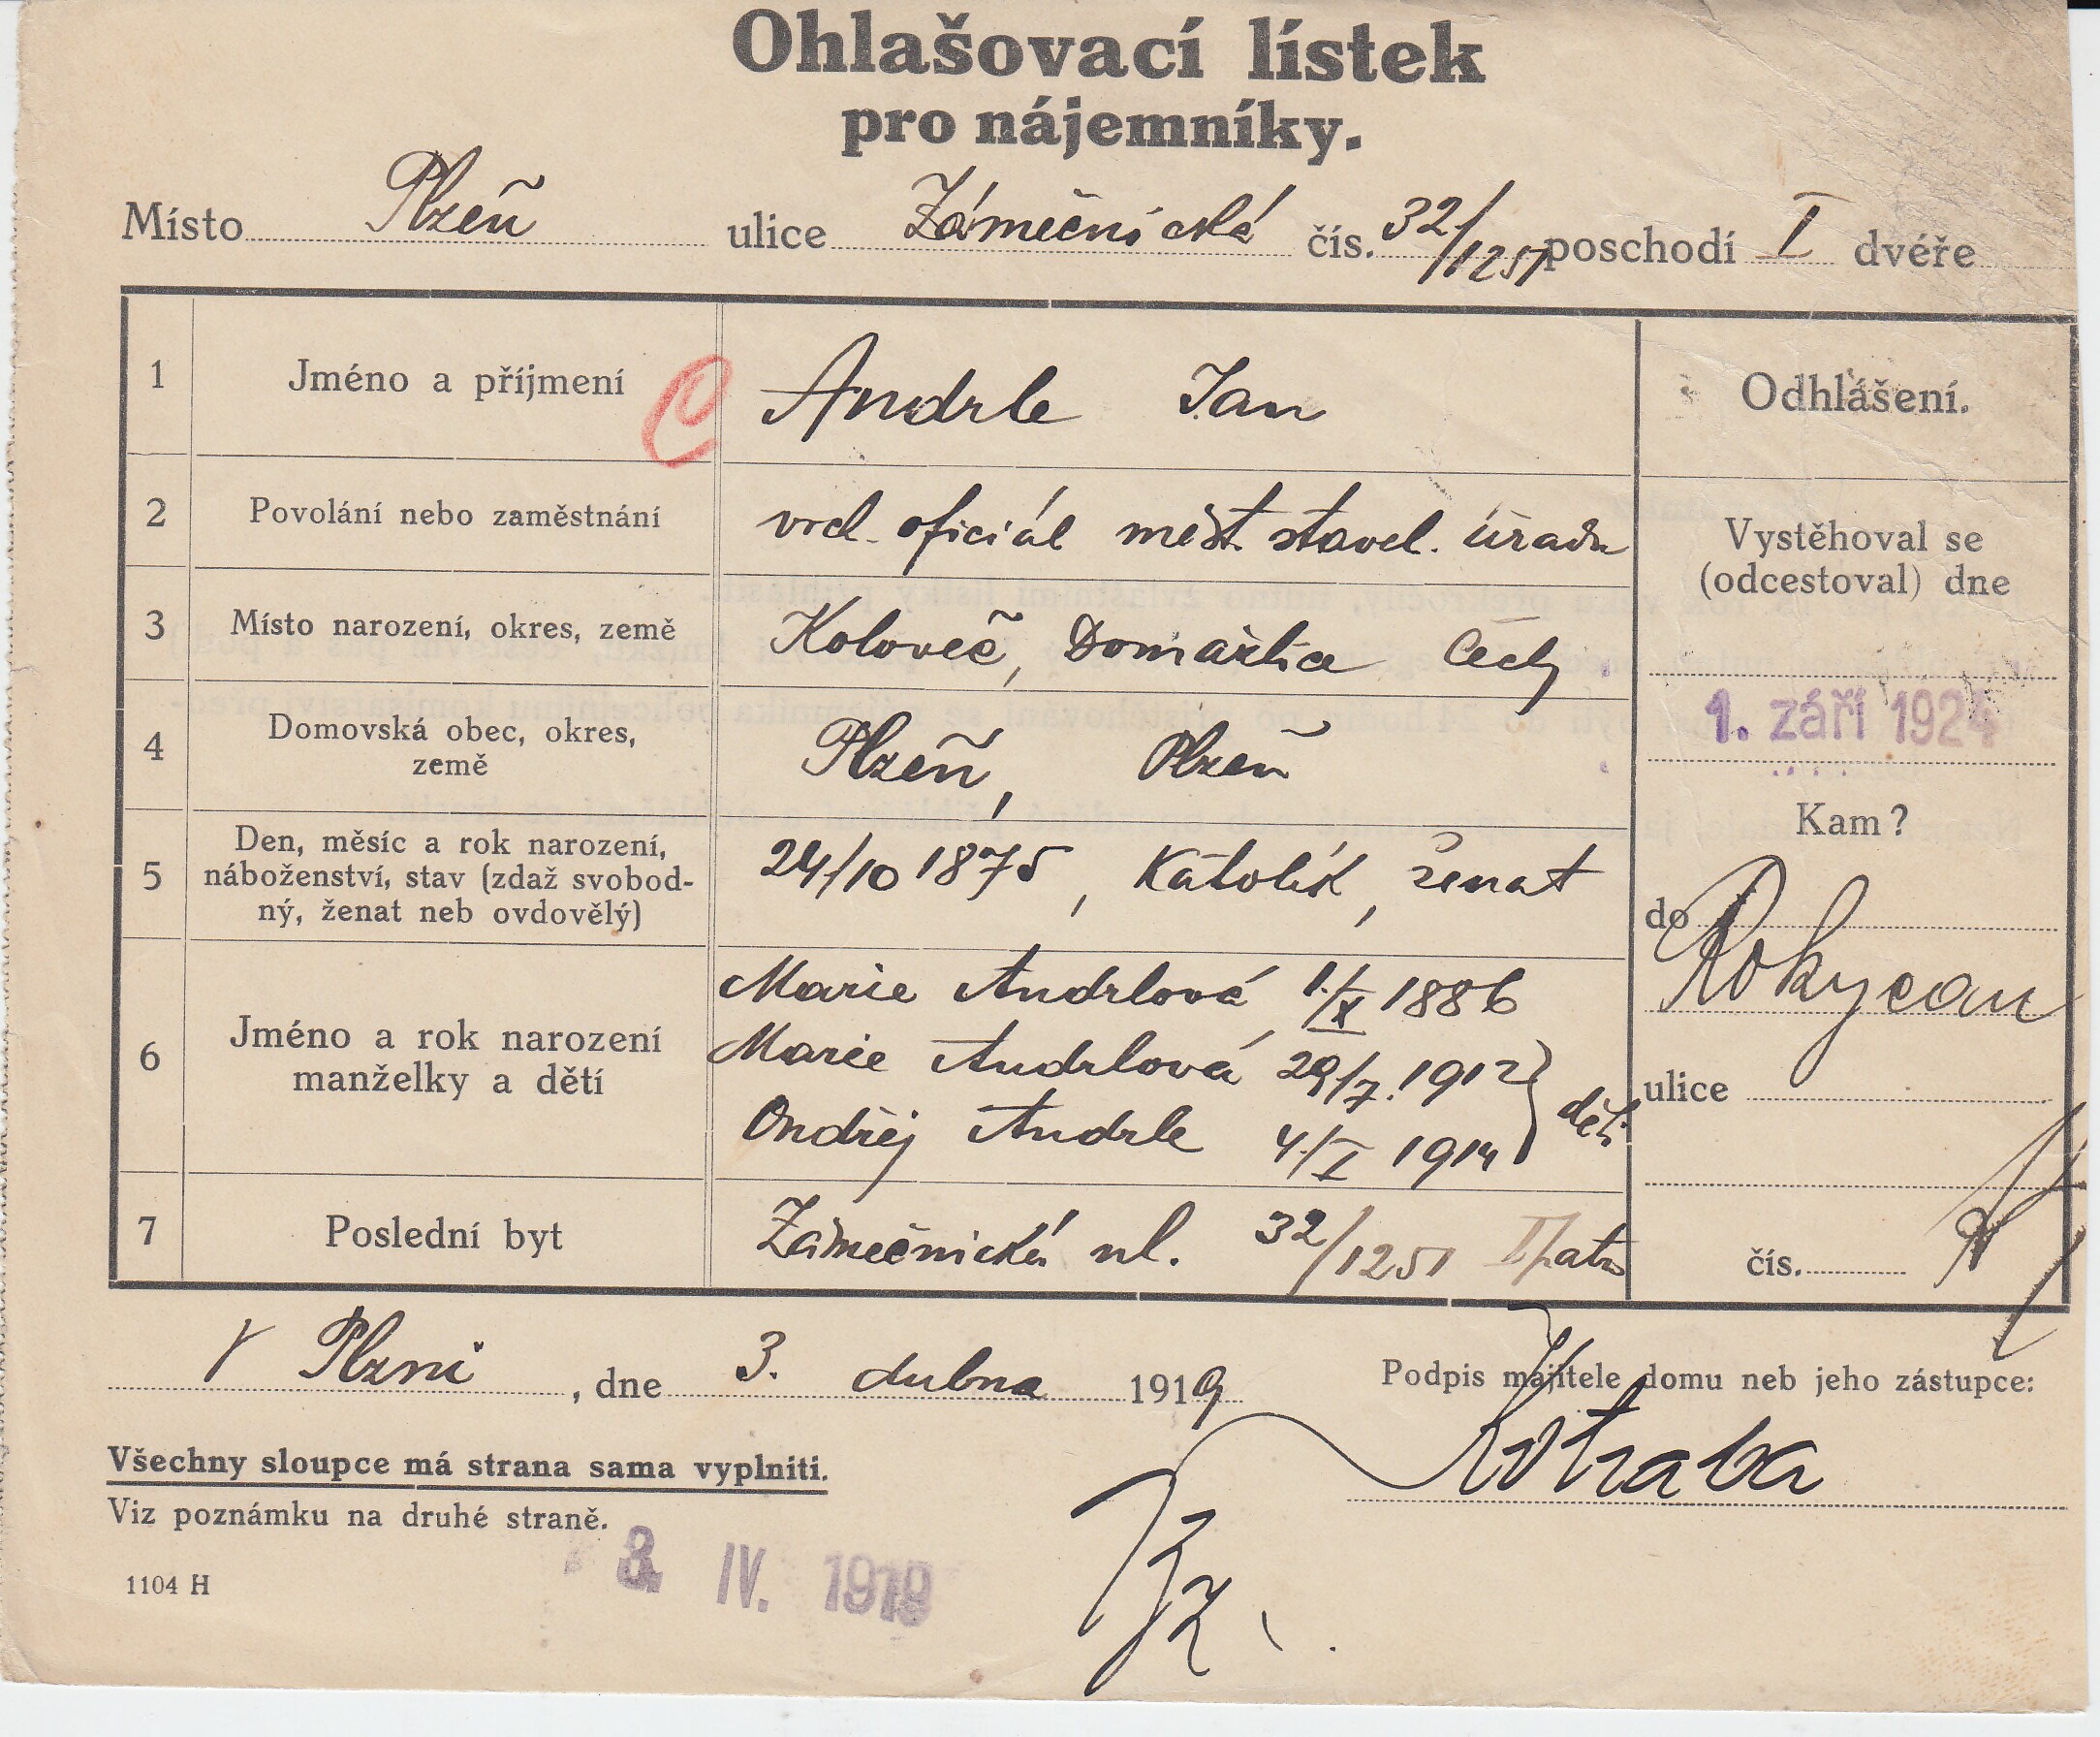 Ohlašovací lístek
pro nájemníky.
Místo Plzeň ulice Zámečnická čís. 32/1251 poschodí I dvéře
1 Jméno a příjmení Andrle Jan
Odhlášení.
2 Povolání nebo zaměstnání vrch. oficiál měst. stavel. úřadu
Vystěhoval se
(odcestoval) dne
3 Místo narození, okres, země Koloveč, Domažlice Čechy
1. září 1924
4 Domovská obec, okres,
země
Plzeň, Plzeň
Kam?
5 Den, měsíc a rok narození,
náboženství, stav (zdaž svobod-
ný, ženat neb ovdovělý)
24/10 1875, Katolík, ženat
do Rokycan
6 Jméno a rok narození
manželky a dětí
Marie Andrlová 1./X 1886
Marie Andrlová 29/7. 1912
Ondřej Andrle 4./I 1914
děti
ulice
7 Poslední byt Zámečnická ul. 32/1251 I/patro
čís.
V Plzni, dne 3. dubna 1919
Podpis majitele domu neb jeho zástupce:
Kotraba
Všechny sloupce má strana sama vyplniti.
Viz poznámku na druhé straně.
3. IV. 1919
1104 H